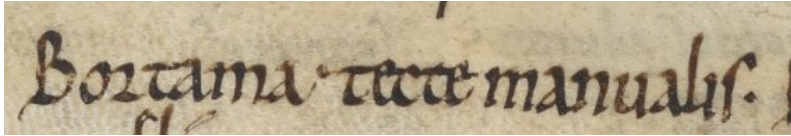 Bortama· tecte manualis·